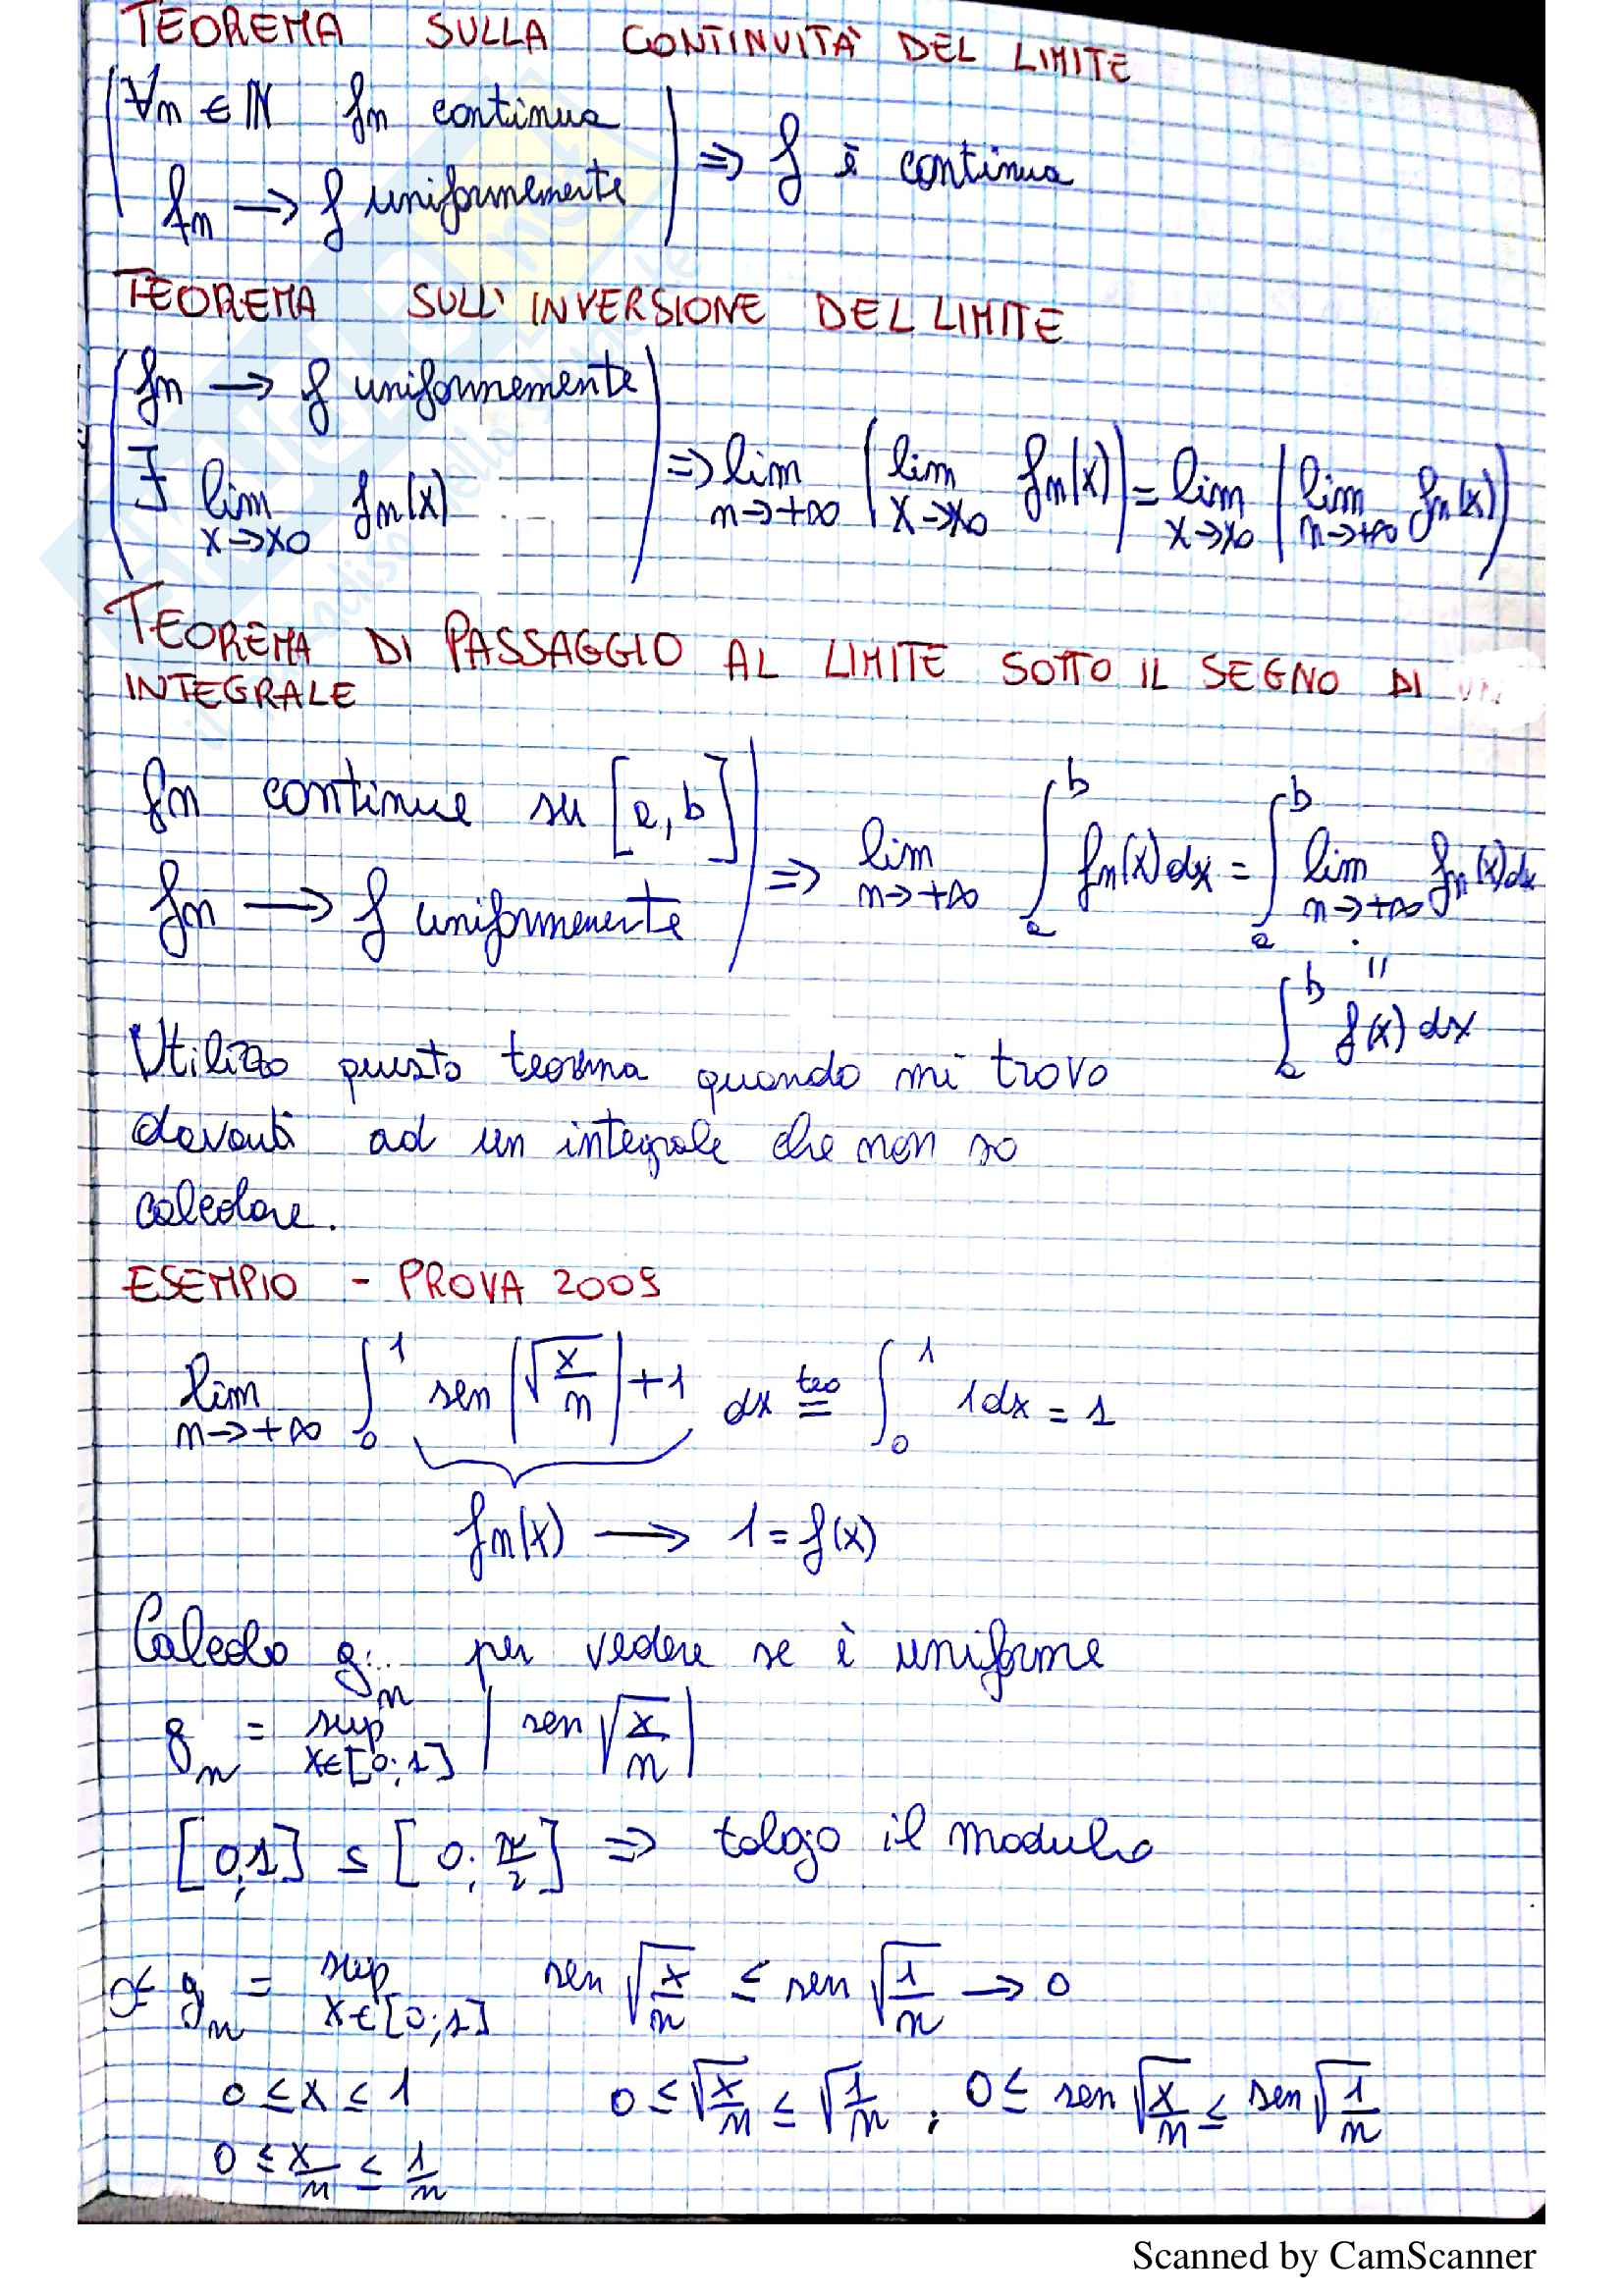 TEOREMA SULLA CONTINUITÀ DEL LIMITE
(∀n ∈ ℕ fn continua
fn → f uniformemente) ⇒ f è continua
TEOREMA SULL'INVERSIONE DEL LIMITE
(fn → f uniformemente
∃ lim x→x0 fn(x)) ⇒ lim n→+∞ (lim x→x0 fn(x)) = lim x→x0 (lim n→+∞ fn(x))
TEOREMA DI PASSAGGIO AL LIMITE SOTTO IL SEGNO DI
INTEGRALE
fn continue su [a,b]
fn → f uniformemente) ⇒ lim n→+∞ ∫_a^b fn(x)dx = ∫_a^b lim n→+∞ fn(x)dx
= ∫_a^b f(x)dx
Utilizzo questo teorema quando mi trovo
davanti ad un integrale che non so
calcolare.
ESEMPIO - PROVA 2009
lim n→+∞ ∫_0^1 sen(√(x/n))+1 dx teo= ∫_0^1 1dx = 1
fn(x) → 1 = f(x)
Calcolo gn per vedere se è uniforme
gn = sup x∈[0;1] |sen √(x/n)|
[0,1] ⊆ [0; π/2] ⇒ tolgo il modulo
0≤ gn = sup x∈[0;1] sen √(x/n) ≤ sen √(1/n) → 0
0 ≤ x ≤ 1 0 ≤ √(x/n) ≤ √(1/n) ; 0 ≤ sen √(x/n) ≤ sen √(1/n)
0 ≤ x/n ≤ 1/n
Scanned by CamScanner